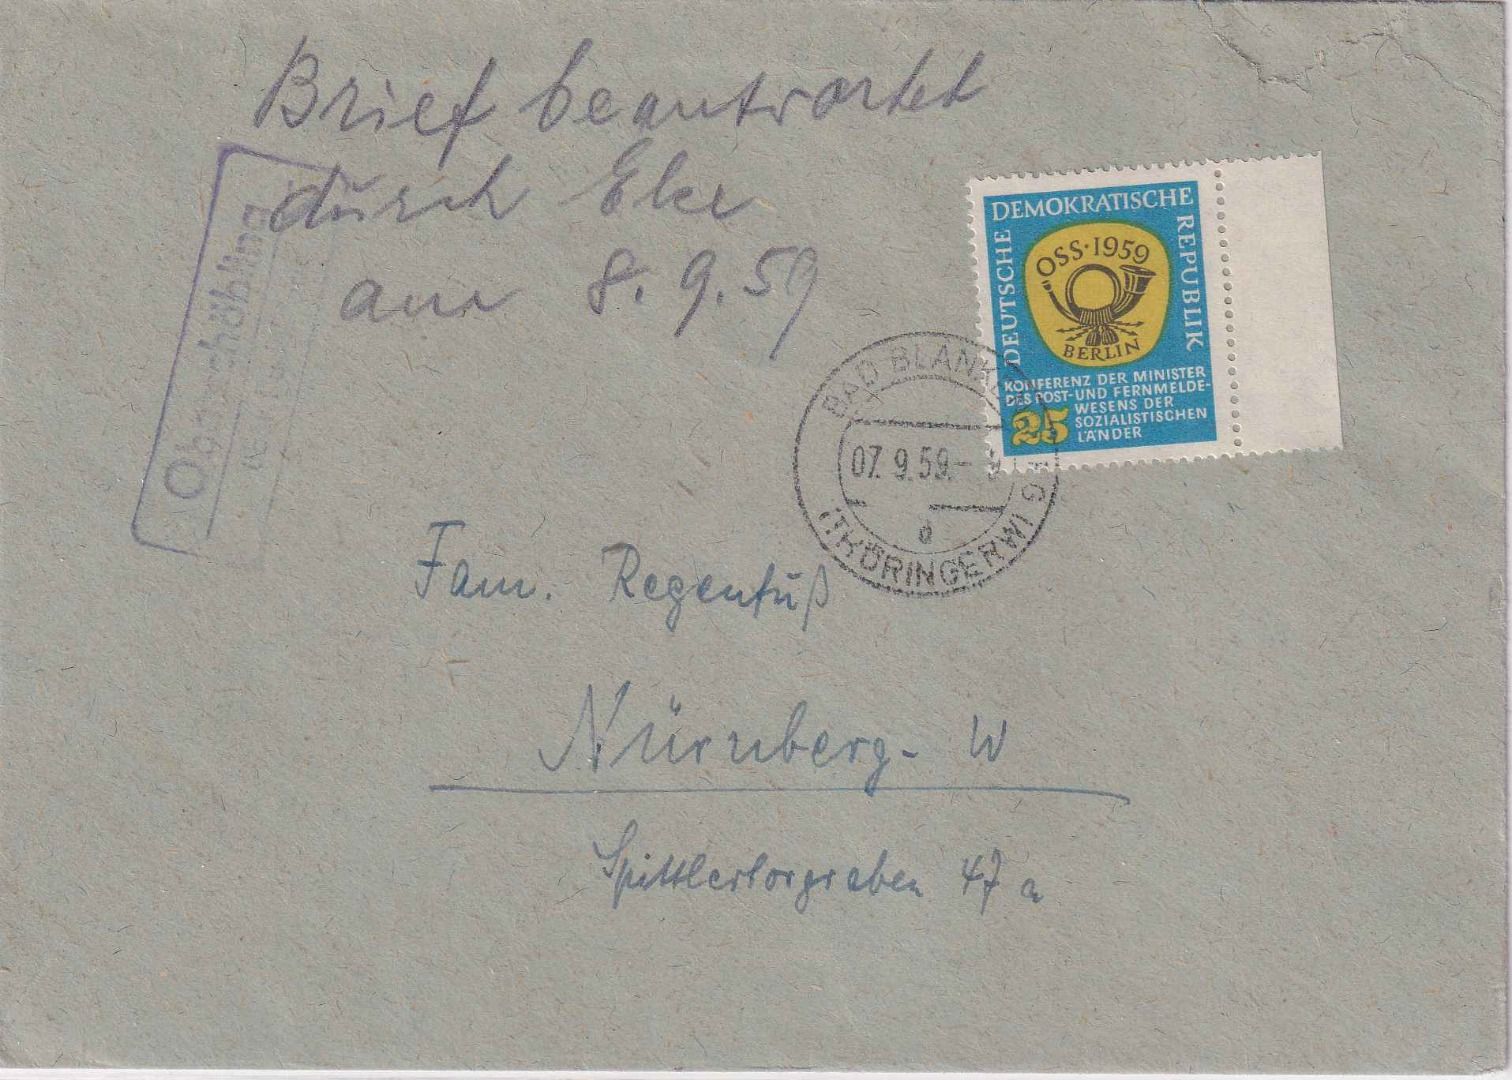 Brief beantwortet
durch Elke
am 8.9.59
DEUTSCHE DEMOKRATISCHE REPUBLIK
OSS·1959
BERLIN
KONFERENZ DER MINISTER
DES POST- UND FERNMELDE-
WESENS DER
SOZIALISTISCHEN
LÄNDER
25
BAD BLANKENBURG
07.9.59.-
d
(THÜRINGERW)
Fam. Regenfuß
Nürnberg-W
Spittlertorgraben 47a